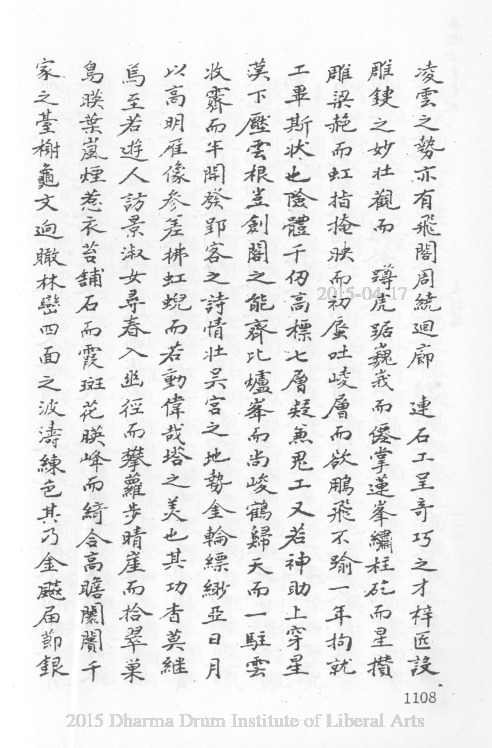 凌雲之勢亦有飛閣周繞迴廊 連石工呈奇巧之才梓匠設
雕鋑之妙壯觀而 蹲虎踞巍峩而僊掌蓮峯繡柱矻而星攢
雕梁赩而虹指掩映而初蜃吐崚層而欲鵬飛不踰一年拘就
工畢斯狀也險體千仞高標七層疑兼鬼工又若神助上穿星
漢下壓雲根豈劍閣之能齊比爐峯而尚峻鶴歸天而一駐雲
收霽而半開發郢客之詩情壯吳宮之地勢金輪縹緲亞日月
以高明隹像參差拂虹蜺而若動偉哉塔之美也其功杳莫継
焉至若遊人訪景淑女尋春入幽徑而攀蘿步晴崖而拾翠巢
鳥暎葉嵐煙惹衣苔舖石而霞斑花暎峰而綺合高瞻闤闠千
家之薹榭龜文逈瞰林巒四面之波濤練色其乃金飈届節銀
1108
2015-04-17
2015 Dharma Drum Institute of Liberal Arts